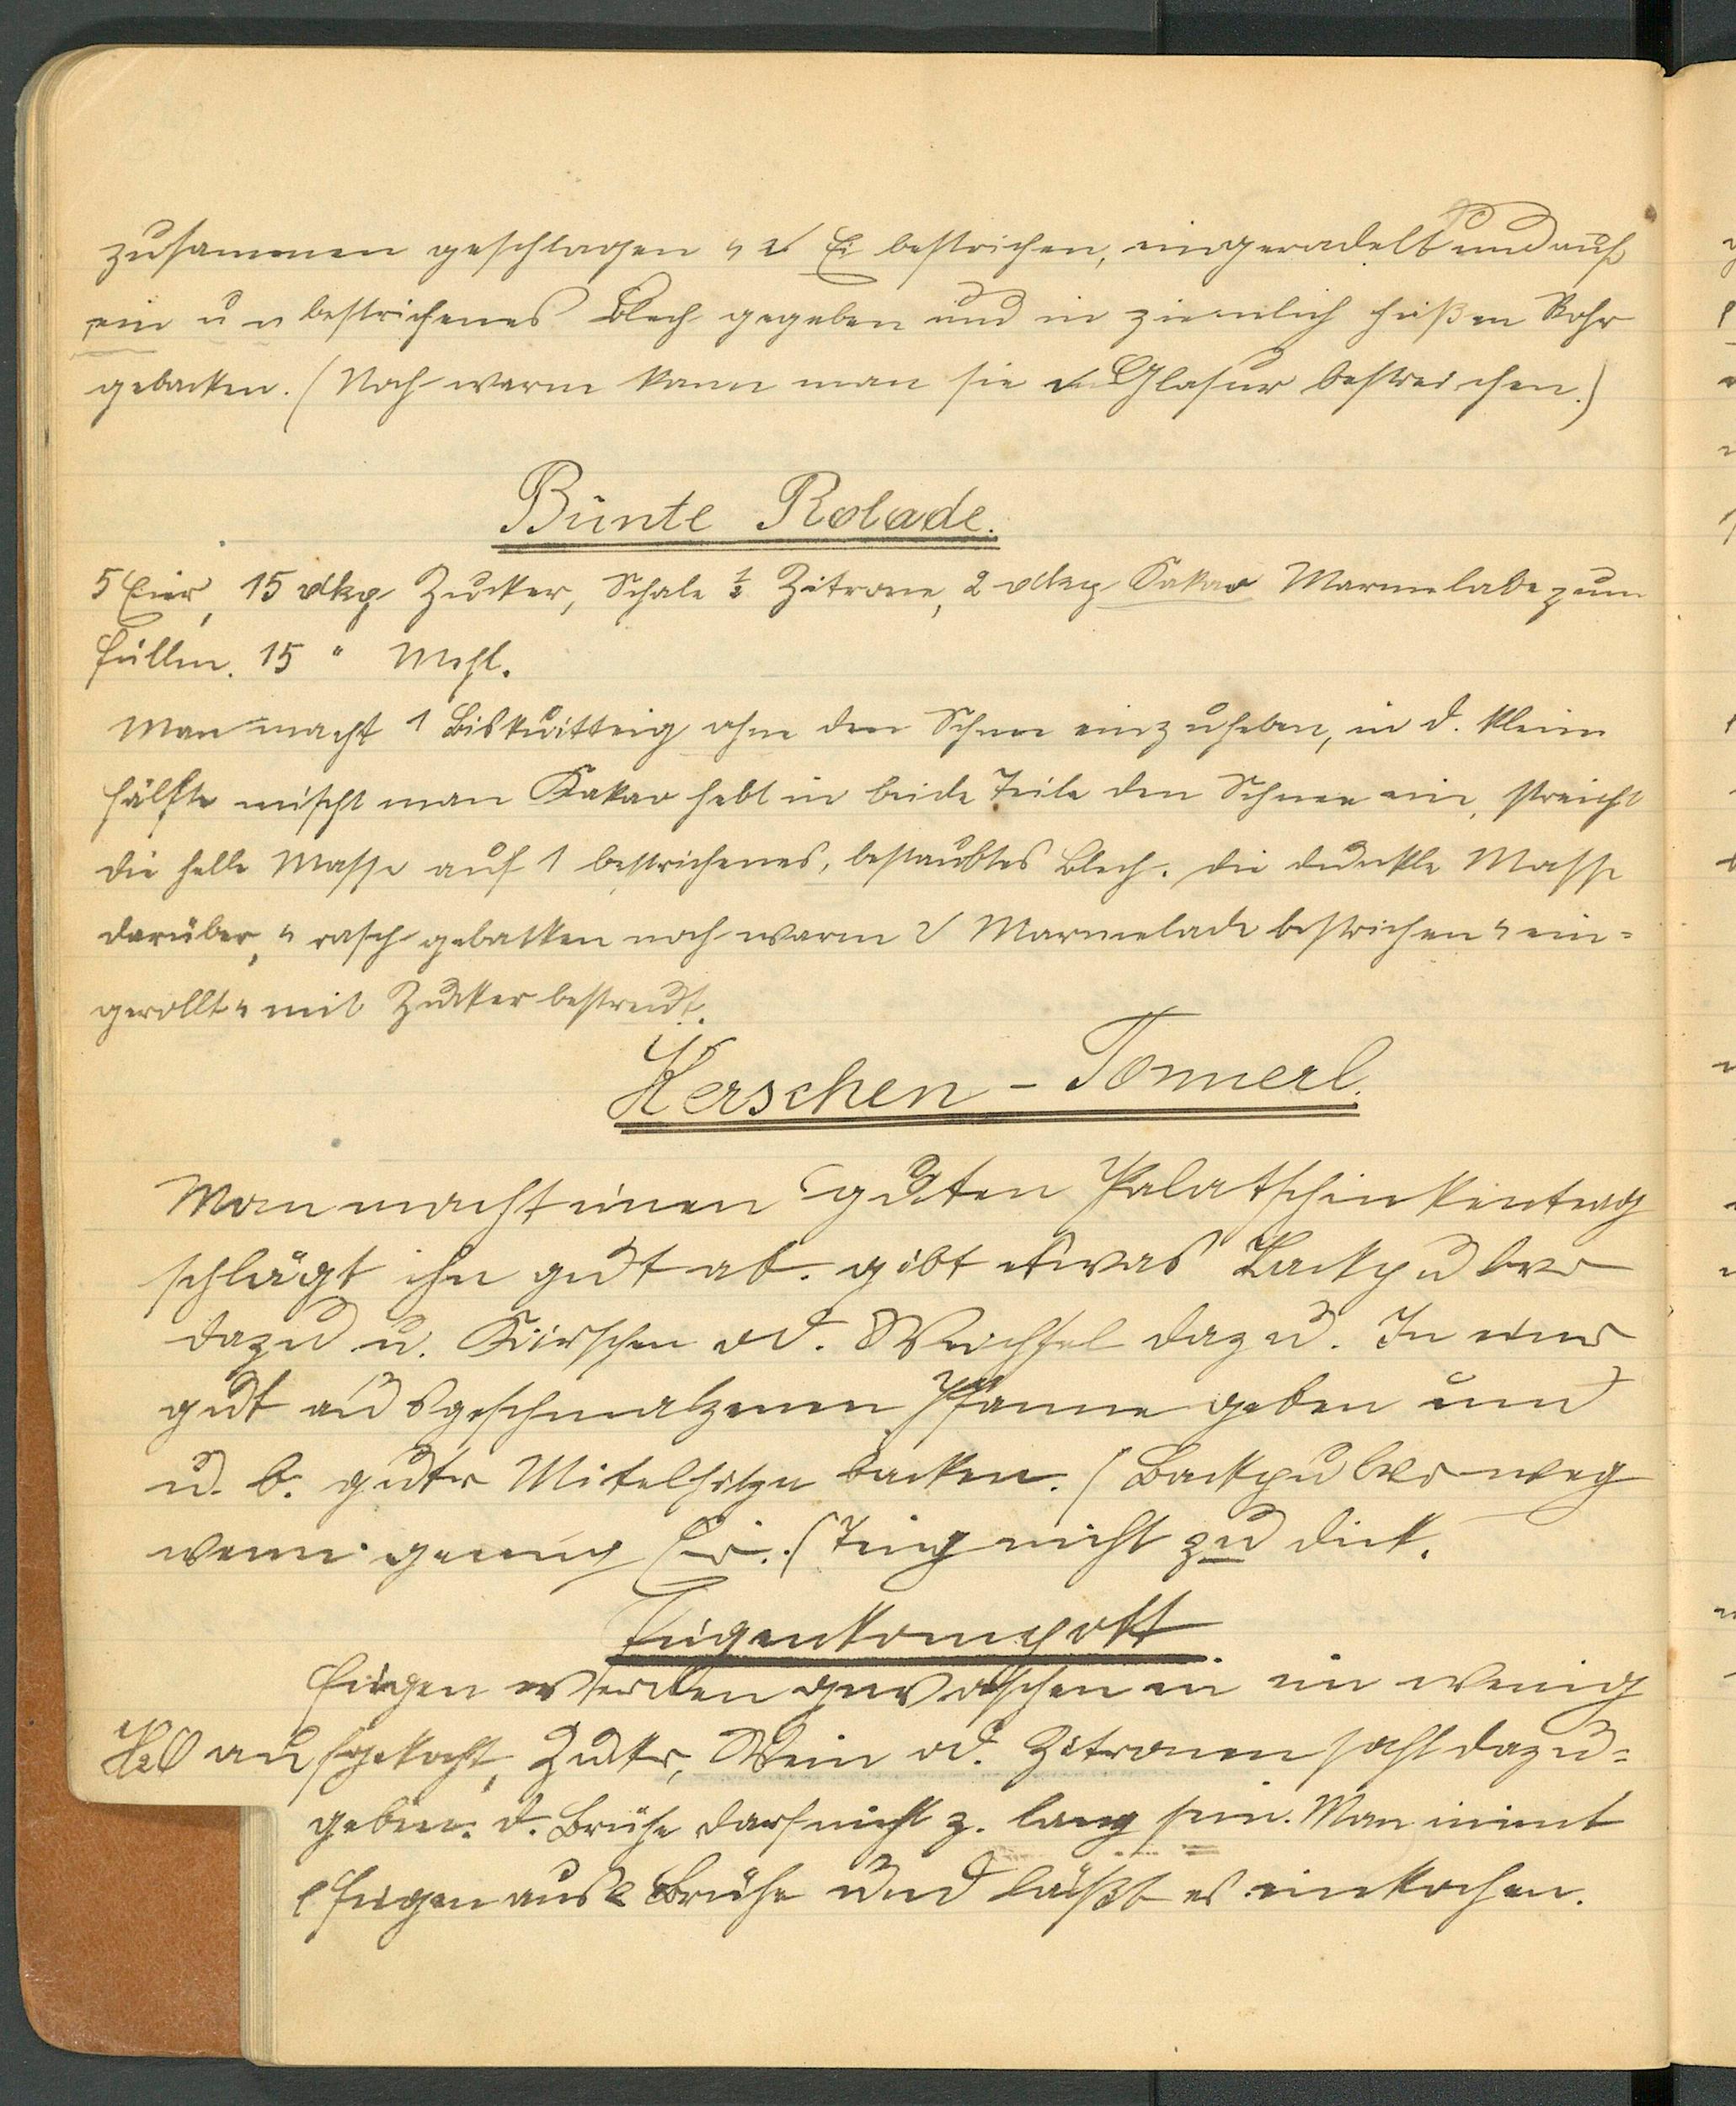 zusammen geschlagen u. Ei bestrichen, eingeradelt und auf
ein unbestrichenes Blech gegeben und in ziemlich heißen Rohr
gebacken. (Noch warm kann man sie Glasur bestreichen.)
Bunte Rolade.
5 Eier, 15 dkg Zucker, Schale ½ Zitrone, 2 dkg Kakao Marmelade zum
füllen. 15 " Mehl.
Man macht 1 Biskuitteig ohne den Schnee einzuheben, in d. kleine
Hälfte mischt man Kakao hebt in beide Teile den Schnee ein, streicht
die helle Masse auf 1 bestrichenes, bestaubtes Blech. die dunkle Masse
darüber, u rasch gebacken noch warm Marmelade bestrichen u ein-
gerollt u mit Zucker bestreut.
Kerschen-Tommerl.
Man macht einen guten Palatschinkenteig
schlägt ihn gut ab. gibt etwas Backpulver
dazu u. Kirschen od. Weichsel dazu. In einer
gut ausgeschmalzenen Pfanne geben und
u. b. guter Mitelhitze backen. (Backpulver weg
wenn genug Ei.) Teig nicht zu dick.
Feigenkompott
Feigen werden gewaschen in ein wenig
aufgekocht, Zucker, Wein od. Zitronensaft dazu-
geben. d. Brühe darf nicht z. lang sein. Man nimt
Feigen aus Brühe und läßt es einkochen.